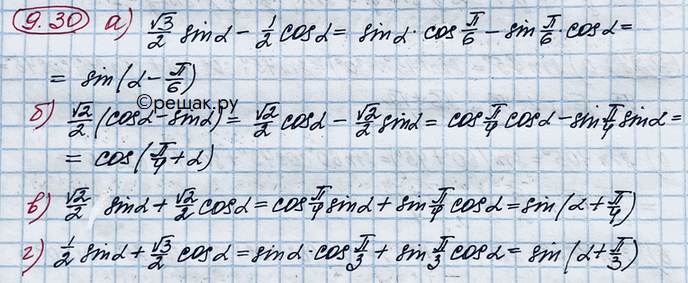 9.30 а) √3/2 sinα - 1/2 cosα = sinα · cos π/6 - sin π/6 · cosα =
= sin(α - π/6)
©решак.ру
б) √2/2 (cosα - sinα) = √2/2 cosα - √2/2 sinα = cos π/4 cosα - sin π/4 sinα =
= cos(π/4 + α)
в) √2/2 sinα + √2/2 cosα = cos π/4 sinα + sin π/4 cosα = sin(α + π/4)
г) 1/2 sinα + √3/2 cosα = sinα · cos π/3 + sin π/3 cosα = sin(α + π/3)